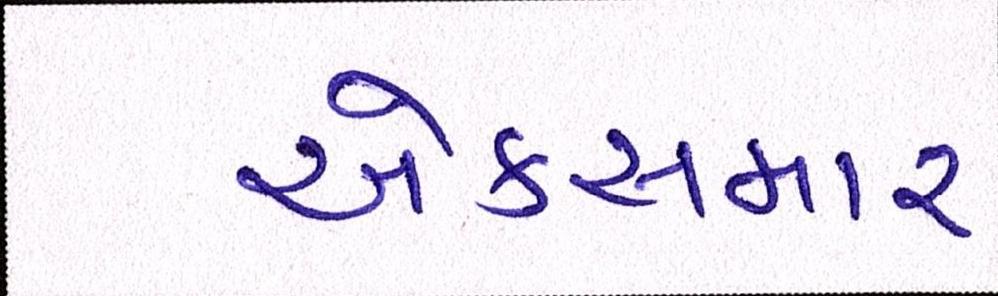 એકસમાર